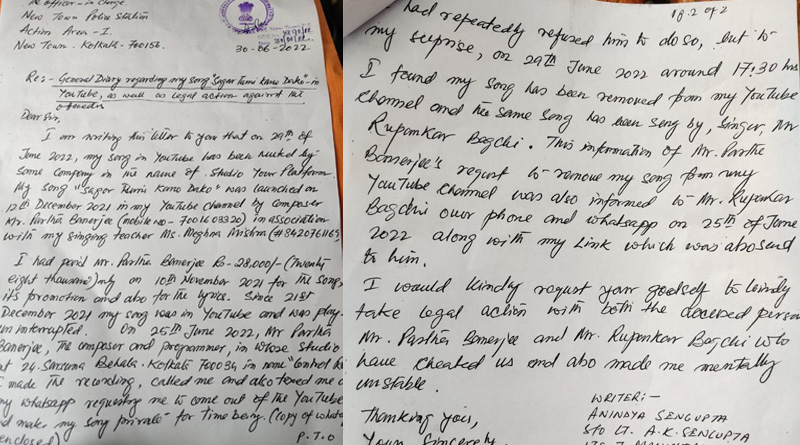 The officer-in charge
New Town Police Station
Action Area-I.
New Town. Kolkata-700156.
30-06-2022
Re:- General Diary regarding my song "Sagar Tumi Kano Dako"-in
YouTube, as well as legal action against the
Dear Sir,
I am writing this letter to you that on 29th of
June 2022, my song in YouTube has been by
some company in the name of Studio Your Platform.
My song "Sagar Tumi Kano Dako" was launched on
12th December 2021 in my YouTube channel by composer
Mr. Partha Banerjee (mobile no- ) in association
with my singing teacher Ms. Meghna
I had paid Mr. Partha Banerjee Rs-28,000/-(Twenty
eight thousand) only on 10th November 2021 for the song,
its promotion and also for the lyrics. Since 21st
December 2021 my song was in YouTube and was play-
uninterrupted. On 25th June 2022, Mr Partha
Banerjee, the composer and programmer, in whose studio
at 24. Behala. Kolkata 700034 in name
I made the recording, called me and also me
my whatsapp requesting me to come out of the YouTube
and make my song private for time being. (copy of
enclosed)
P.T.O
Pg. 2 of 2
had repeatedly refused him to do so, but to
my surprise, on 29th June 2022 around 17:30 hrs
I found my song has been removed from my YouTube
channel and the same song has been sung by, singer, Mr
Rupankar Bagchi. This information of Mr. Partha
Bannerjee's request to remove my song from my
YouTube channel was also informed to Mr. Rupankar
Bagchi over phone and whatsapp on 25th of June
2022 along with my Link which was also send
to him.
I would kindly request your goodself to kindly
take legal action with both the accused person
Mr. Partha Banerjee and Mr. Rupankar Bagchi who
have cheated us and also made me mentally
unstable.
Thanking you,
Your Sincerely
WRITER:-
ANINDYA SENGUPTA
S/O LT. A.K. SENGUPTA